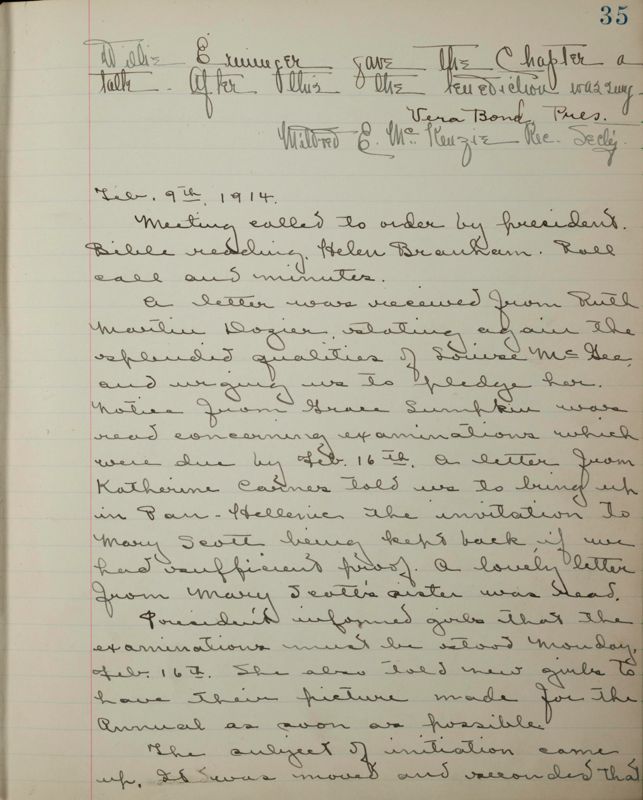 35
Willie Erminger gave the Chapter a
talk. After this the benediction was sung.
Vera Bond, Pres.
Mildred E. McKenzie Rec. Sec'y.
Feb. 9th, 1914.
Meeting called to order by president.
Bible reading, Helen Branham. Roll
call and minutes.
A letter was received from Ruth
Martin Dozier stating again the
splendid qualities of Louise McGee,
and urging us to pledge her.
Notice from Grace Lumpkin was
read concerning examinations which
were due by Feb. 16th. A letter from
Katherine Carnes told us to bring up
in Pan-Hellenic the invitation to
Mary Scott being kept back, if we
had sufficient proof. A lovely letter
from Mary Scott's sister was read.
President informed girls that the
examinations must be stood Monday,
Feb. 16th. She also told new girls to
have their picture made for the
Annual as soon as possible.
The subject of initiation came
up. It was moved and seconded that